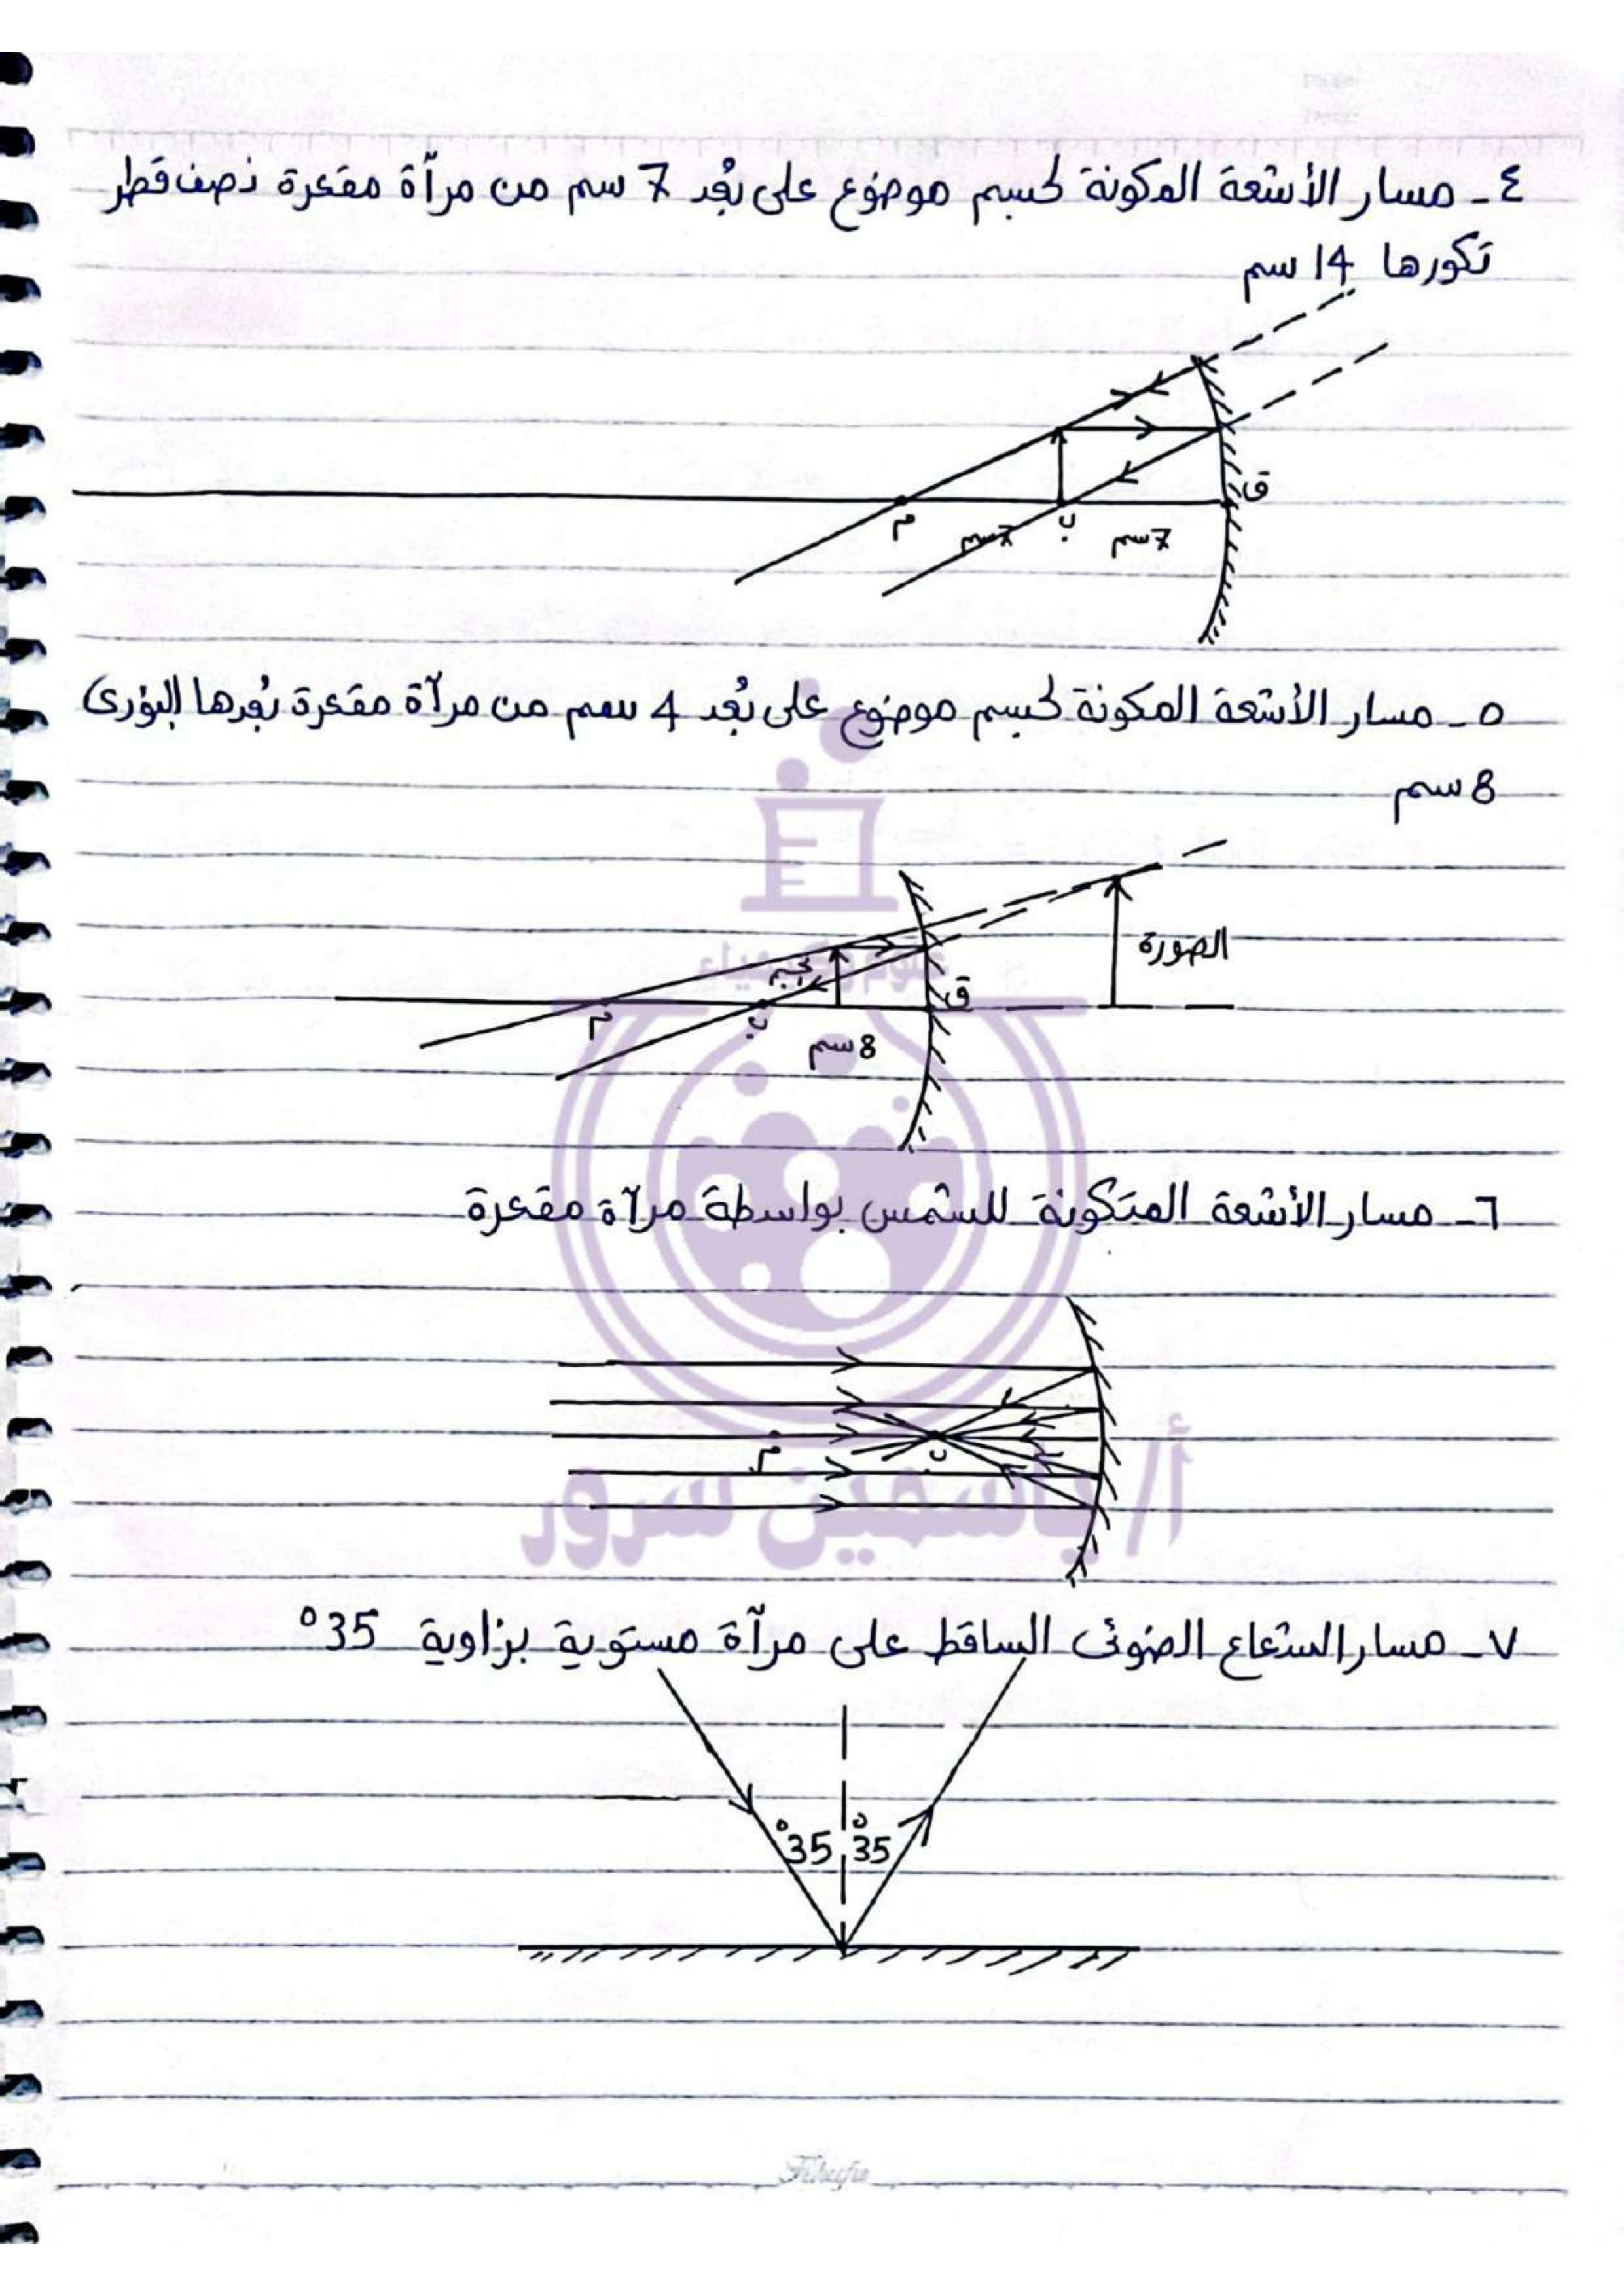 ٤ - مسار الأشعة المكونة لجسم موضوع على بُعد 7 سم من مرآة مقعرة نصف قطر
تكورها 14 سم
ق
م
7سم
ب
7سم
٥ - مسار الأشعة المكونة لجسم موضوع على بُعد 4 سم من مرآة مقعرة بُعدها البؤرى
8 سم
الصورة
جسم
ق
م
ب
8 سم
٦ - مسار الأشعة المتكونة للشمس بواسطة مرآة مقعرة
م
ب
أ/ ياسمين سرور
٧ - مسار الشعاع الضوئى الساقط على مرآة مستوية بزاوية 35°
35°
35°